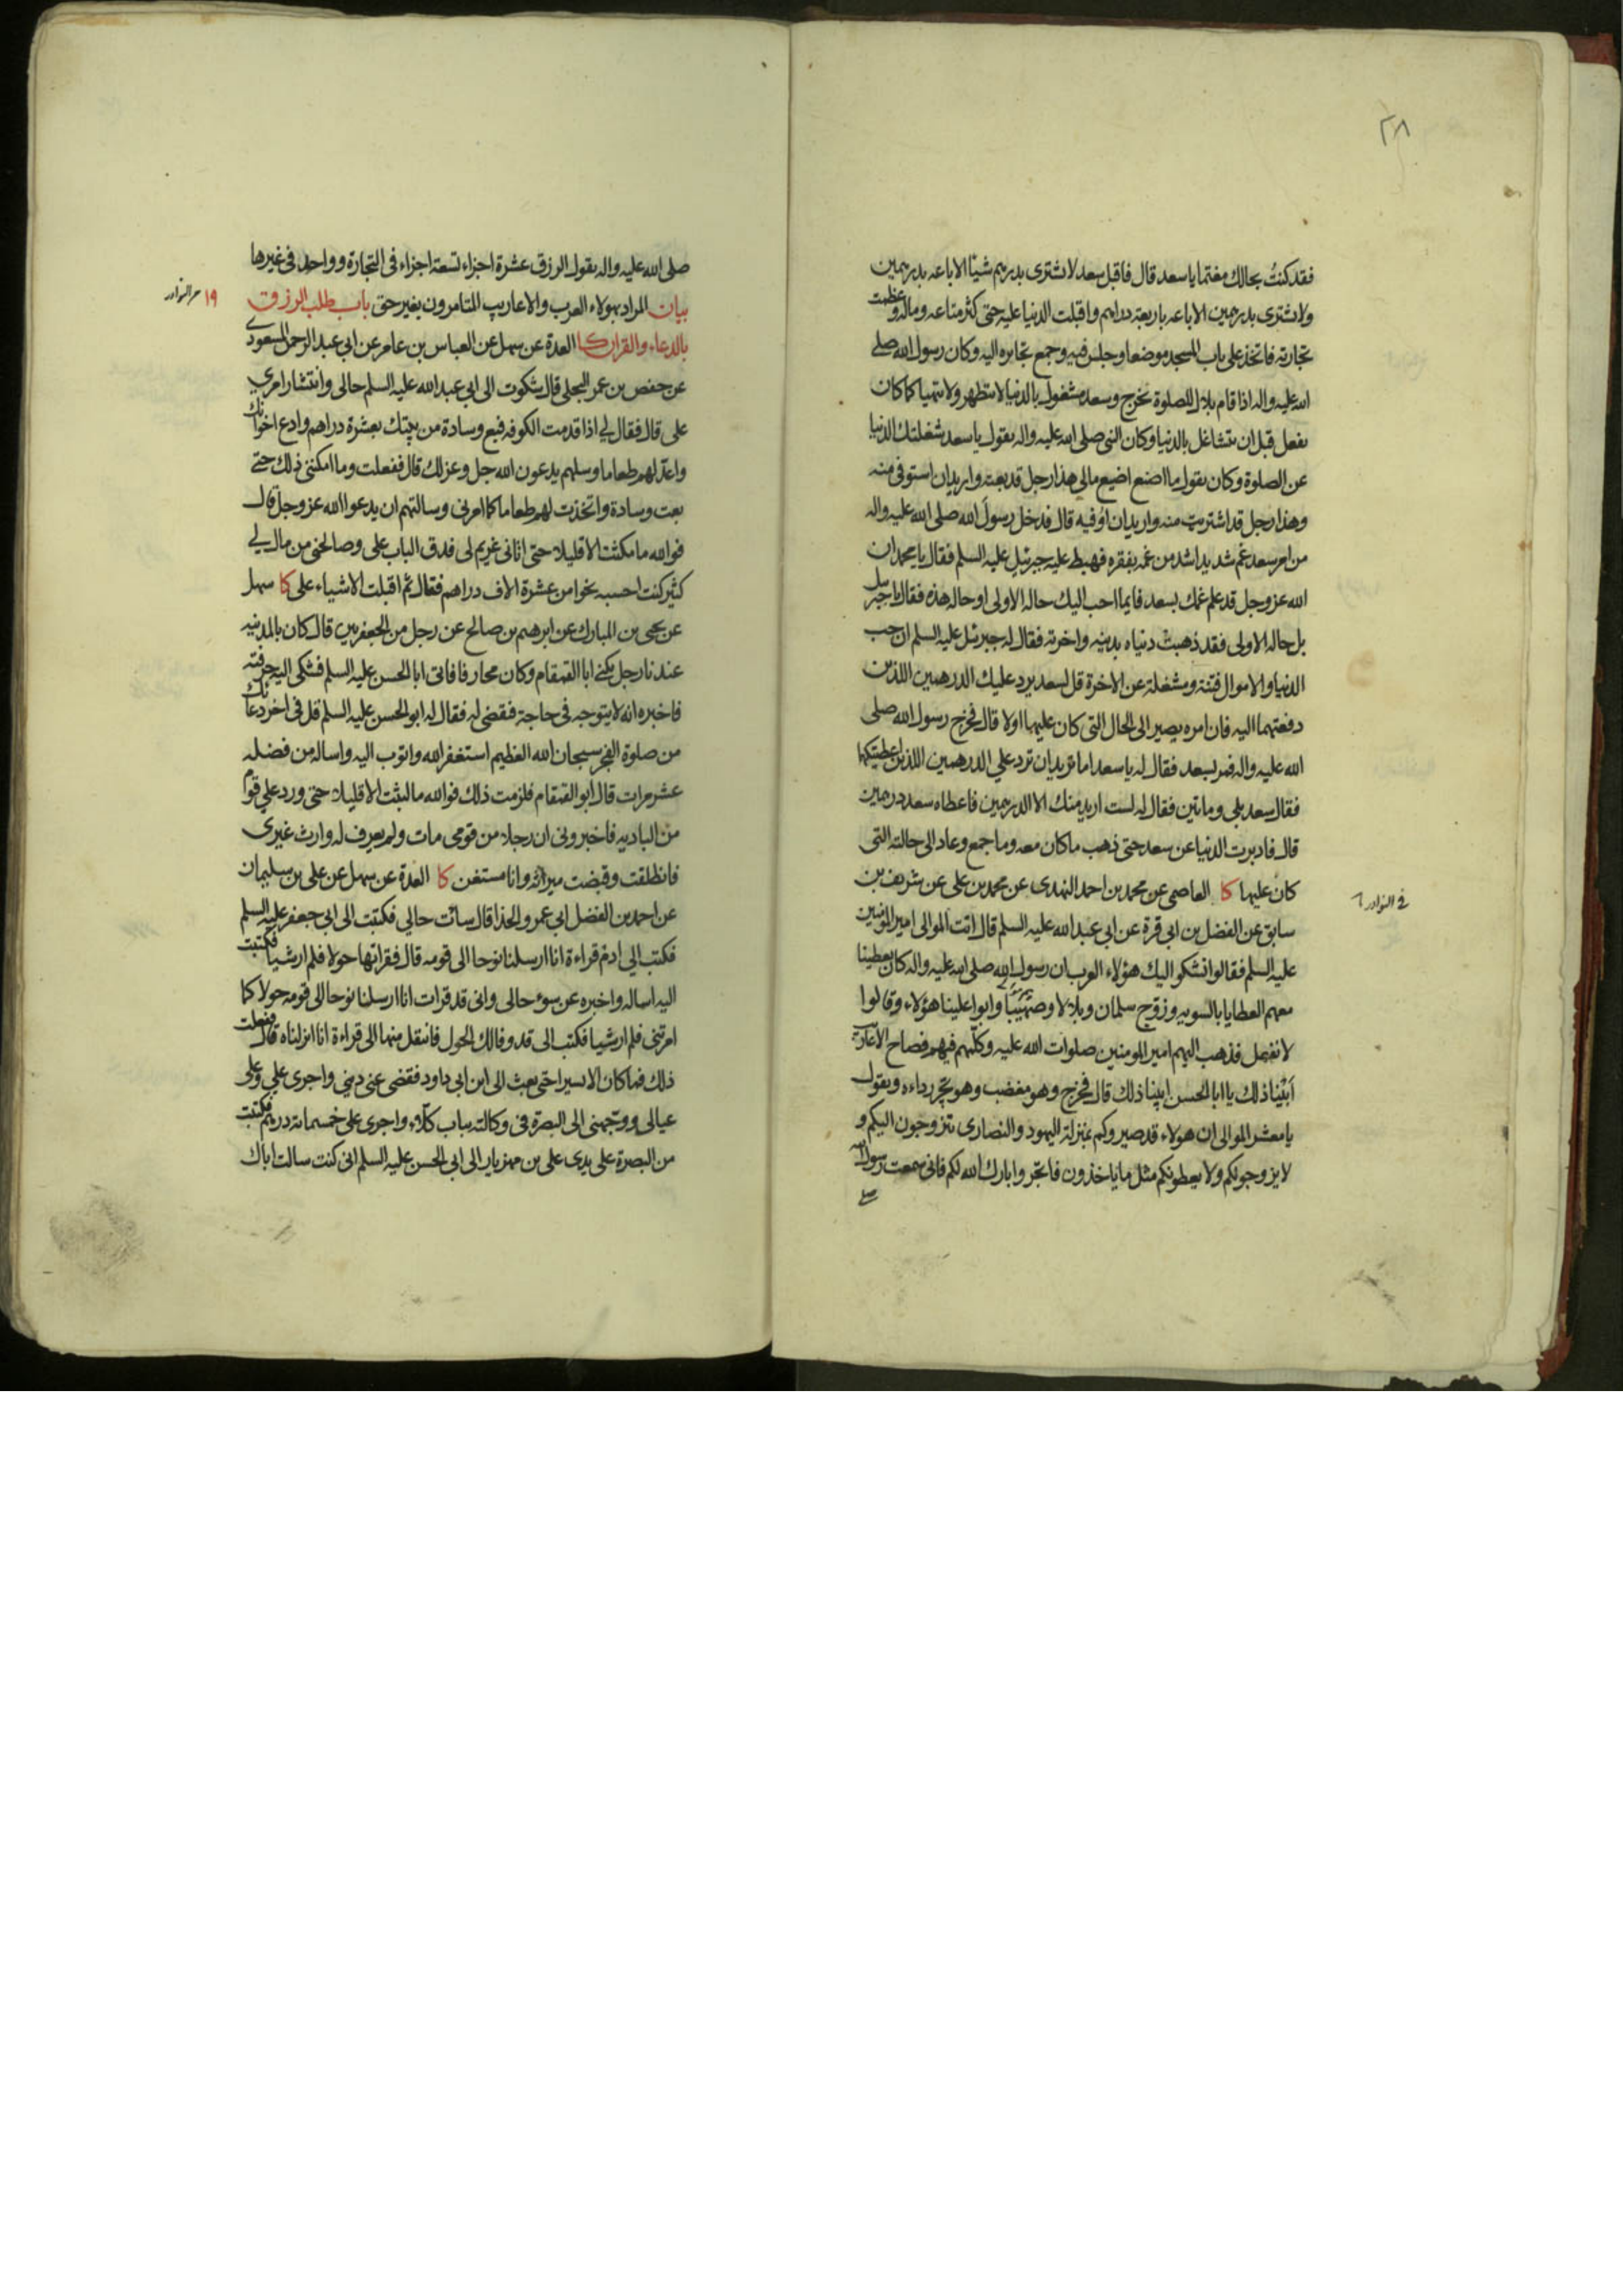 ٢٨
فقد كنتُ بحالك مغتما يا سعد قال فاقبل سعد لا يشترى بدرهم شيئا الا باعه بدرهمين
ولا يشترى بدرهمين الا باعه باربعة دراهم واقبلت الدنيا عليه حتى كثر متاعه وماله وعظمت
تجارته فاتخذ على باب المسجد موضعا وجلس فيه وجمع تجايره اليه وكان رسول الله صلى
الله عليه واله اذا قام بلال للصلوة يخرج وسعد مشغول بالدنيا لا يتطهر ولا يتهيا كما كان
يفعل قبل ان يتشاغل بالدنيا وكان النبى صلى الله عليه واله يقول يا سعد شغلتك الدنيا
عن الصلوة وكان يقول ما اصنع اضيع مالى هذا رجل قد بعته واريد ان استوفى منه
وهذا رجل قد اشتريت منه واريد ان اوفيه قال فدخل رسول الله صلى الله عليه واله
من امر سعد غم شديد اشد من غمه بفقره فهبط عليه جبرئيل عليه السلم فقال يا محمد ان
الله عز وجل قد علم غمك بسعد فايما احب اليك حاله الاولى او حاله هذه فقال يا جبرئيل
بل حاله الاولى فقد ذهبت دنياه بدينه واخرته فقال له جبرئيل عليه السلم ان حب
الدنيا والاموال فتنة ومشغلة عن الاخرة قل لسعد يرد عليك الدرهمين اللذين
دفعتهما اليه فان امره يصير الى الحال التى كان عليها اولا قال فخرج رسول الله صلى
الله عليه واله فمر بسعد فقال له يا سعد اما تريد ان ترد على الدرهمين اللذين اعطيتكها
فقال سعد بلى ومائتين فقال له لست اريد منك الا الدرهمين فاعطاه سعد درهمين
قال فادبرت الدنيا عن سعد حتى ذهب ما كان معه وما جمع وعاد الى حالته التى
كان عليها كا العاصمى عن محمد بن احمد النهدى عن محمد بن على عن شريف بن
في النوادر
سابق عن الفضل بن ابى قرة عن ابى عبد الله عليه السلم قال اتت الموالى امير المومنين
عليه السلم فقالوا نشكو اليك هؤلاء العرب ان رسول الله صلى الله عليه واله كان يعطينا
معهم العطايا بالسويه وزوج سلمان وبلالا وصهيبا وابوا علينا هؤلاء وقالوا
لا نفعل فذهب اليهم امير المومنين صلوات الله عليه وكلمهم فيهم فصاح الاعاريب
ابينا ذلك يا ابا الحسن ابينا ذلك قال فخرج وهو مغضب وهو يجر رداءه ويقول
يا معشر الموالى ان هولاء قد صيروكم بمنزلة اليهود والنصارى يتزوجون اليكم و
لا يزوجونكم ولا يعطونكم مثل ما ياخذون فاتجروا بارك الله لكم فانى سمعت رسول الله
صلى
صلى الله عليه واله يقول الرزق عشرة اجزاء تسعة اجزاء فى التجارة وواحد فى غيرها
بيان المراد بهولاء العرب والاعاريب المتامرون بغير حق باب طلب الرزق
١٩ من النوادر
بالدعاء والقران كا العدة عن سهل عن العباس بن عامر عن ابى عبد الرحمن المسعودى
عن حفص بن عمر البجلى قال شكوت الى ابى عبد الله عليه السلم حالى وانتشار امرى
على قال فقال لى اذا قدمت الكوفه فبع وسادة من بيتك بعشرة دراهم وادع اخوانك
واعد لهم طعاما وسلهم يدعون الله جل وعز لك قال ففعلت وما امكننى ذلك حتى
بعت وسادة واتخذت لهم طعاما كما امرنى وسالتهم ان يدعوا الله عز وجل قال
فوالله ما مكثت الا قليلا حتى اتانى غريم لى فدق الباب على وصالحنى من مال لى
كثير كنت احسبه نحوا من عشرة الاف دراهم فقال ثم اقبلت الاشياء على كا سهل
عن يحيى بن المبارك عن ابرهيم بن صالح عن رجل من الجعفريين قال كان بالمدينه
عندنا رجل يكنى ابا القمقام وكان محارفا فاتى ابا الحسن عليه السلم فشكى اليه حرفته
فاخبره انه لا يتوجه فى حاجة فيقضى له فقال له ابو الحسن عليه السلم قل فى اخر دعائك
من صلوة الفجر سبحان الله العظيم استغفر الله واتوب اليه واساله من فضله
عشر مرات قال ابو القمقام فلزمت ذلك فوالله ما لبثت الا قليلا حتى ورد على قوم
من الباديه فاخبرونى ان رجلا من قومى مات ولم يعرف له وارث غيرى
فانطلقت وقبضت ميراثه وانا مستغن كا العدة عن سهل عن على بن سليمان
عن احمد بن الفضل ابى عمرو الحذا قال سائت حالى فكتبت الى ابى جعفر عليه السلم
فكتب الى ادم قراءة انا ارسلنا نوحا الى قومه قال فقراتها حولا فلم ار شيا فكتبت
اليه اساله واخبره عن سوء حالى وانى قد قرات انا ارسلنا نوحا الى قومه حولا كما
امرتنى فلم ار شيا فكتب الى قد وفا لك الحول فانتقل منها الى قراءة انا انزلناه قال ففعلت
ذلك فما كان الا يسيرا حتى بعث الى ابن ابى داود فقضى عنى دينى واجرى على وعلى
عيالى ووجهنى الى البصرة فى وكالته بباب كلاء واجرى على خمسمائة درهم فكتبت
من البصرة على يدى على بن مهزيار الى ابى الحسن عليه السلم انى كنت سالت اباك